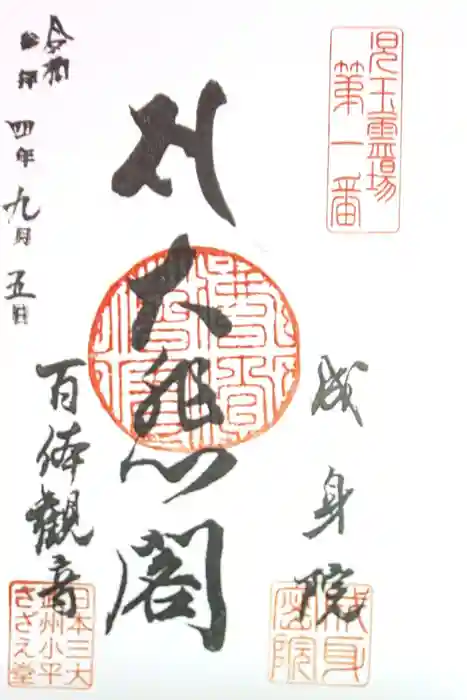 児玉霊場
第一番
成身院
大悲閣
百体觀音
令和四年九月五日
日本三大
武州小平
さざえ堂